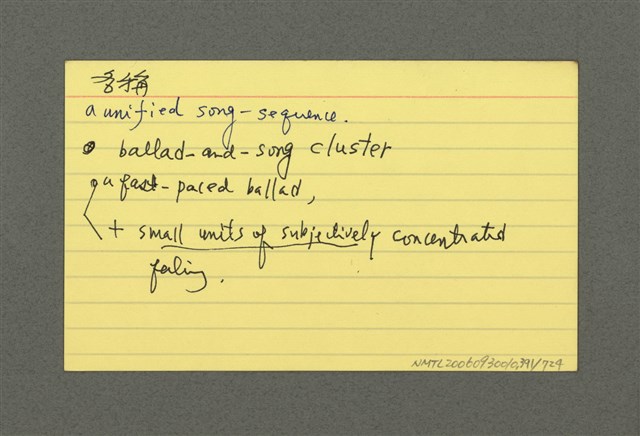 a unified song-sequence.
ballad-and-song cluster
a fast-paced ballad,
+ small units of subjectively concentrated
feeling.